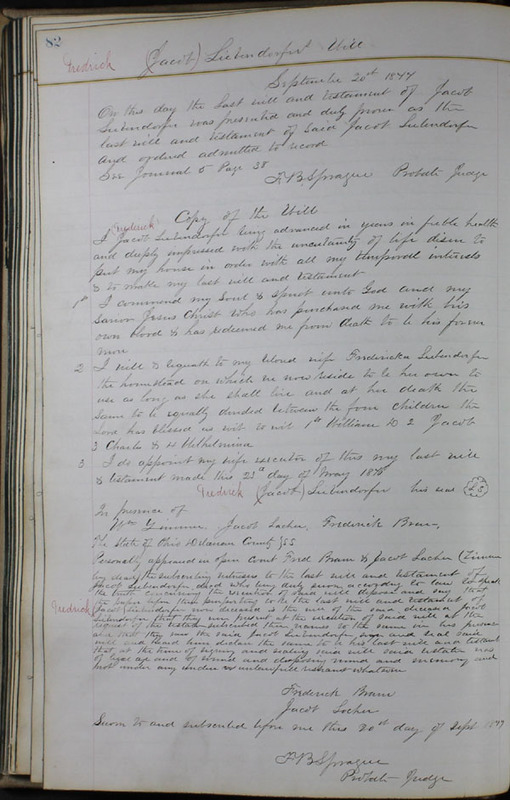 82
Fredrick (Jacob) Siebendorfer's Will
September 20th 1877
On this day the Last will and testament of Jacob
Siebendorfer was presented and duly proven as the
last will and testament of Said Jacob Siebendorfer
and ordered admitted to record
See Journal 5 Page 38
F B Sprague Probate Judge
Copy of the Will
Fredrick
I Jacob Siebendorfer being advanced in years in feeble health
and deeply impressed with the uncertainty of life desire to
put my house in order with all my temporal interests
& to make my last will and testament
1st I commend my Soul & spirit unto God and my
Savior Jesus Christ who has purchased me with his
own blood & has redeemed me from death to be his forever
more
2 I will & bequath to my beloved wife Fredericka Siebendorfer
the homestead on which we now reside to be her own to
use as long as she shall live and at her death the
same to be equally divided between the four children the
Lord has blessed us with to wit 1st William 2 Jacob
3 Charles & 4 Wilhelmina
3 I do appoint my wife executor of this my last will
& testament made this day of May
Fredrick (Jacob) Siebendorfer his seal
In presence of
Wm Zimmer, Jacob Locher, Frederick Bram,
The State of Ohio Delaware County SS
Personally appeared in open Court Fred Bram & Jacob Locher (Zimmer
being dead) the subscribing witnesses to the last will and testament of
Jacob Siebendorfer, decd who being duly sworn according to law to speak
the truth concerning the execution of said will depose and say that
the paper before them purporting to be the last will and testament of
Fredrick Jacob Siebendorfer now deceased is the will of the said deceased Jacob
Siebendorfer that they were present at the execution of said will at the
request of the testator subscribed their names to the same in his presence
and that they saw the said Jacob Siebendorfer sign and seal said
will and heard him declare the same to be his last will and testament
that at the time of signing and sealing said will said testator was
of legal age and of sound and disposing mind and memory and
not under any undue or unlawful restraint whatever
Frederick Bram
Jacob Locher
Sworn to and subscribed before me this 20th day of Sept 1877
F B Sprague
Probate Judge